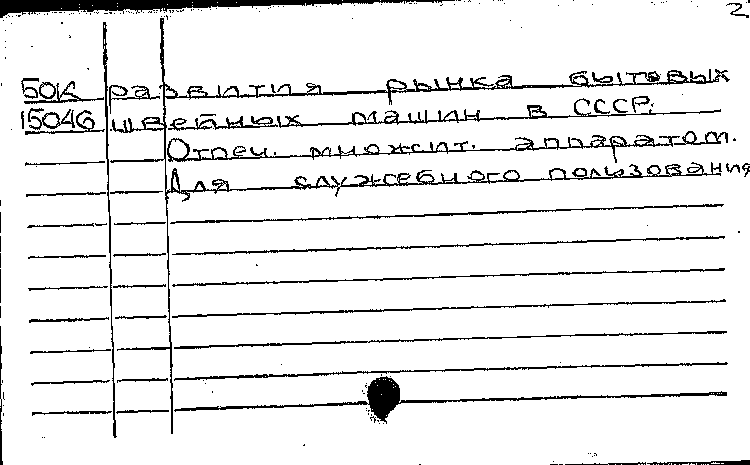 2.
50к развития рынка бытовых
15046 швейных машин в СССР.
Отпеч. множит. аппаратом.
Для служебного пользования